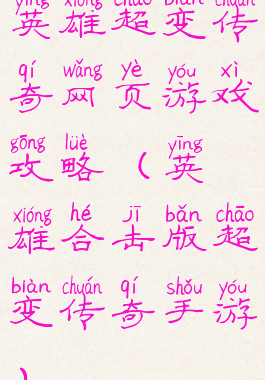 yīng xióng chāo biàn chuán
英雄超变传
qí wǎng yè yóu xì
奇网页游戏
gōng lüè yīng
攻略（英
xióng hé jī bǎn chāo
雄合击版超
biàn chuán qí shǒu yóu
变传奇手游
）